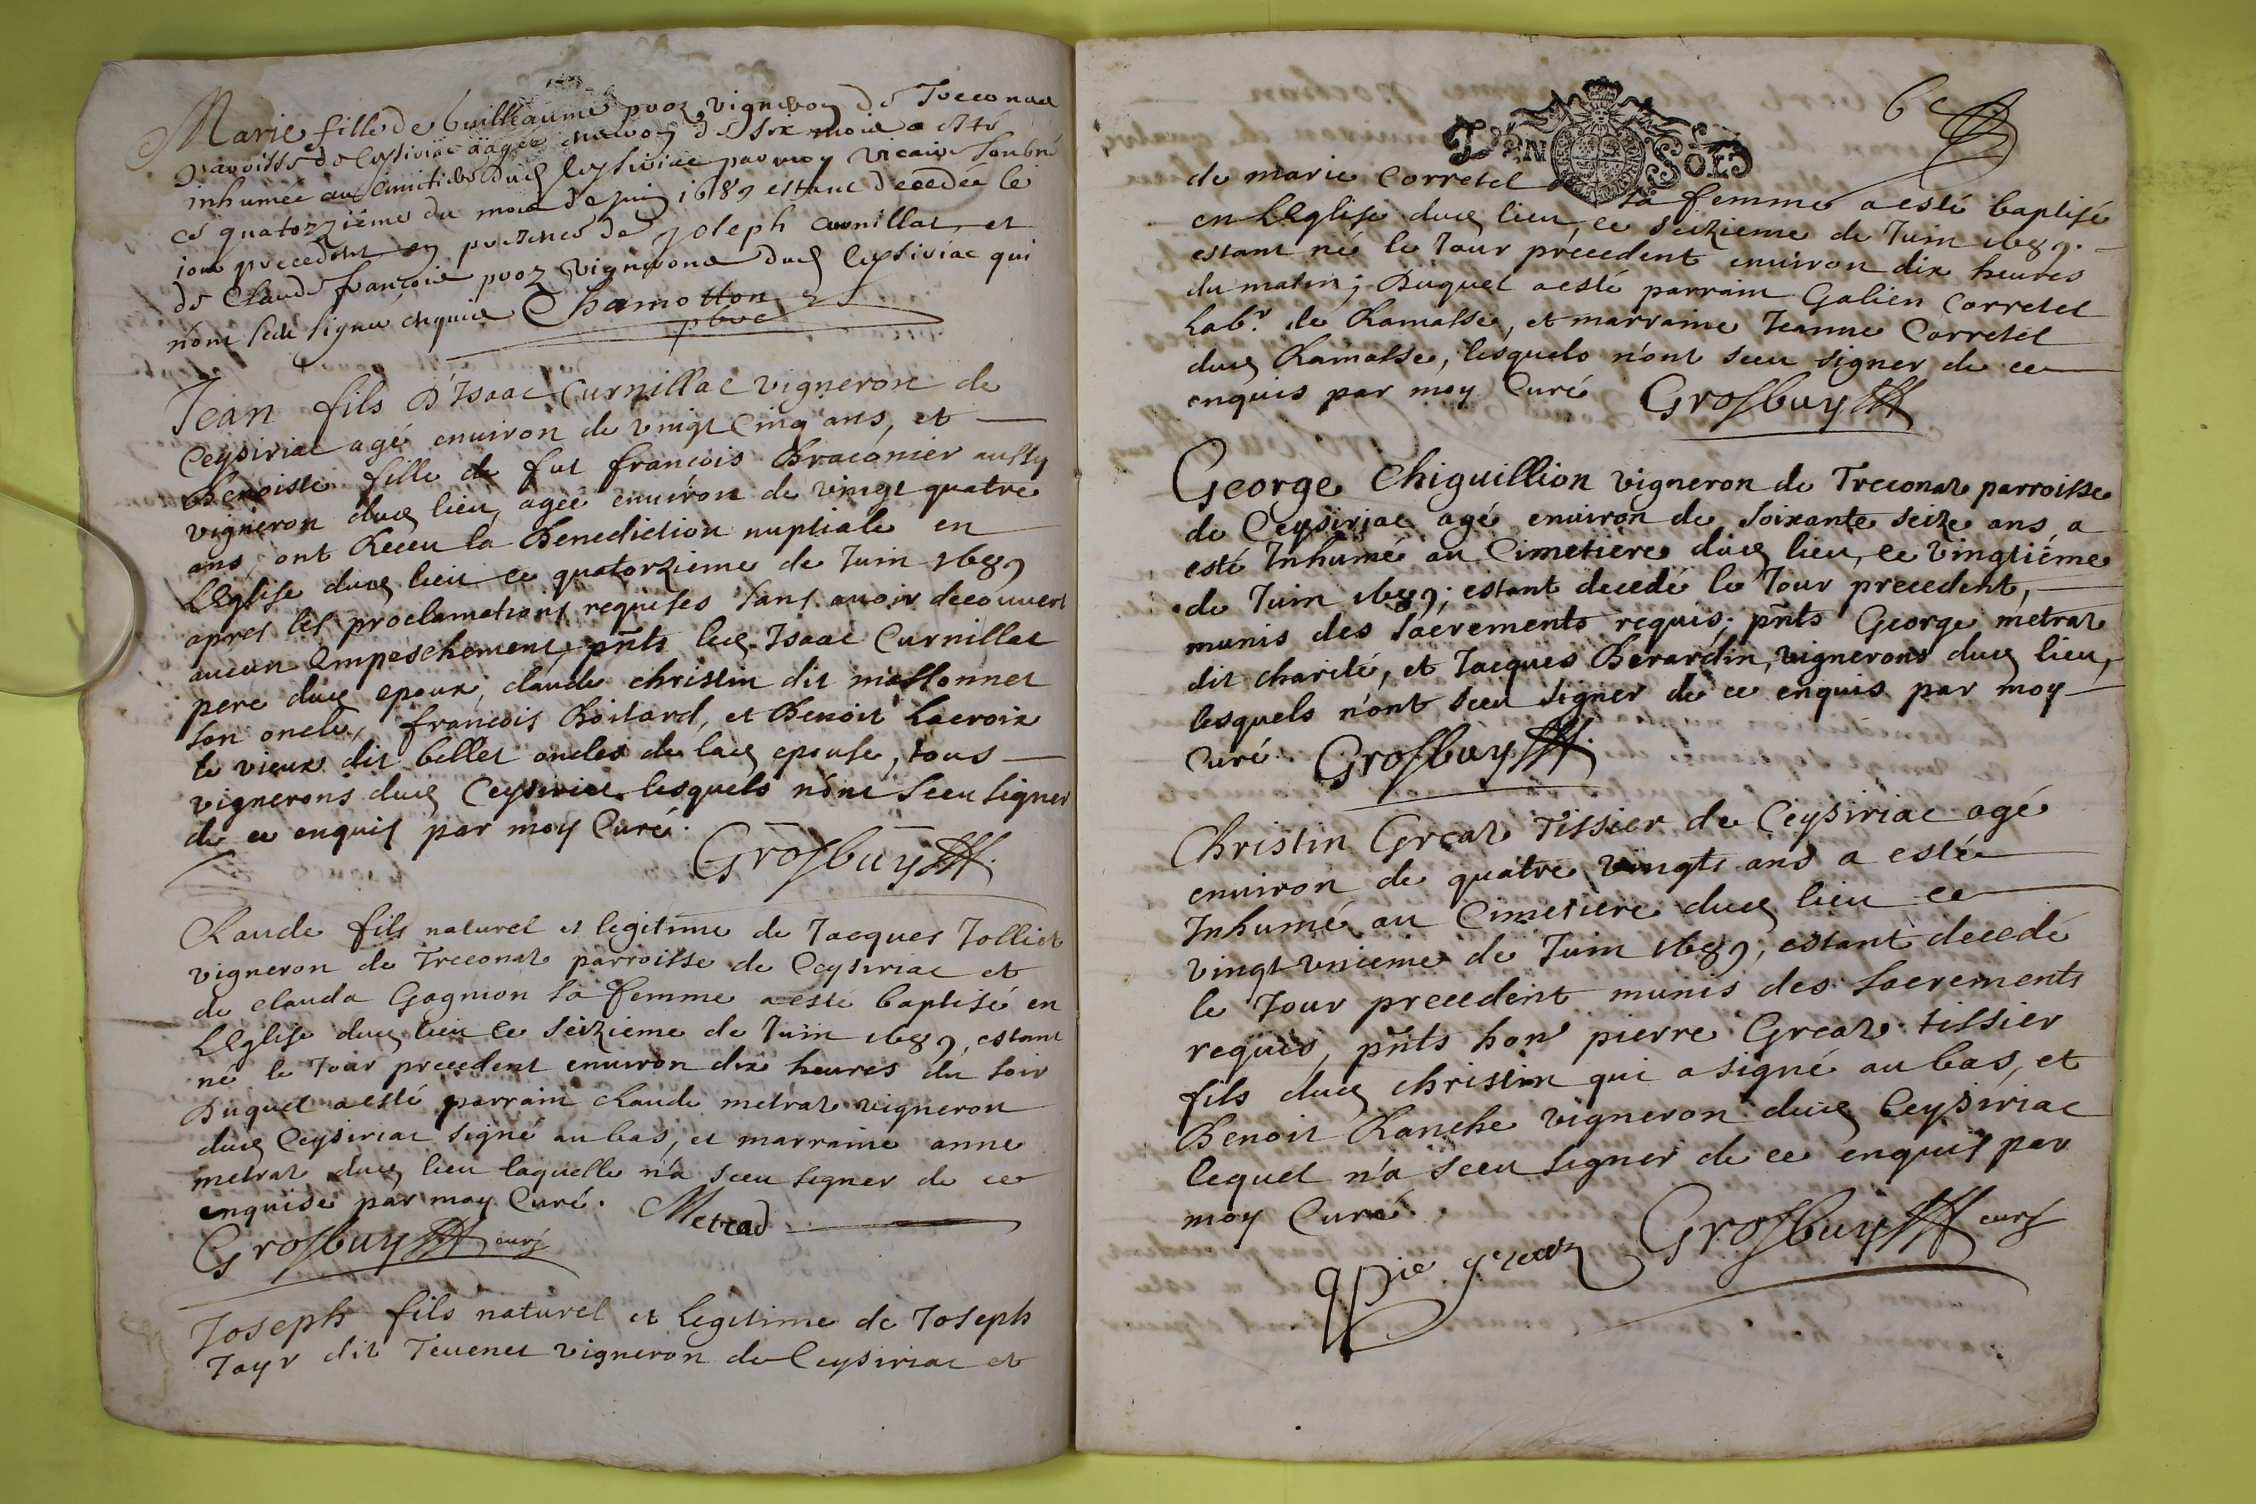 Marie fille de Guilleaume proz vigneron de Treconaz
parroisse de Ceysiriac aagée environ de six mois a esté
inhumée au cimetiere dud Ceysiriac par moy vicaire soubné
ce quatorzième du mois de juin 1689 estant decedée le
jour precedent en presence de Joseph Curnillat, et
de Claude françois proz vignerons dud Ceysiriac qui
n'ont sceu signer enquis Chamotton
pbre
Jean fils D'Isaac Curnillat vigneron de
Ceysiriat agé environ de vingt cinq ans, et
Benoiste fille de fut francois Braconier aussy
vigneron ducg lieu, agée environ de vingt quatre
ans, ont Receu la Benediction nuptiale en
L'Eglise ducg lieu ce quatorzieme de Juin 1689
apres les proclamations requises sans avoir decouvert
aucun Empeschement, pñts lecg Isaac Curnillat
pere ducg epoux, claude christin dit massonnet
son oncle, francois Boilard, et Benoit Lacroix
le vieux dit bellet oncles de lacg epouse, tous
vignerons ducg Ceysiriat lesquels n'ont sceu signer
de ce enquis par moy Curé.
Grosbuy
Claude fils naturel et legitime de Jacques Jolliet
vigneron de Treconaz parroisse de Ceysiriat et
de clauda Gagnion sa femme a esté baptisé en
L'Eglise ducg lieu ce seizieme de Juin 1689, estant
né le Jour precedent environ dix heures du soir
Duquel a esté parrain claude metraz vigneron
ducg Ceysiriat signé au bas, et marraine anne
metraz ducg lieu laquelle n'a sceu signer de ce
enquise par moy Curé. Metrad
Grosbuy curé
Joseph fils naturel et legitime de Joseph
Jayr dit Tevenet vigneron de Ceysiriat et
6e
DEN SOLS
de marie Corretel sa femme a esté baptisé
en L'Eglise ducg lieu, ce seizieme de Juin 1689.
estant né le Jour precedent environ dix heures
du matin; Duquel a esté parrain Galien Corretel
Labr. de Ramasse, et marraine Jeanne Corretel
ducg Ramasse, lesquels n'ont sceu signer de ce
enquis par moy Curé Grosbuy
George Chiguillion vigneron de Treconaz parroisse
de Ceysiriac agé environ de soixante seize ans a
esté Inhumé au Cimetiere ducg lieu, ce vingtiéme
de Juin 1689; estant decedé le Jour precedent,
munis des sacrements requis; pñts George metraz
dit charité, et Jacques Berardin, vignerons ducg lieu,
lesquels n'ont sceu signer de ce enquis par moy
Curé. Grosbuy
Christin Greaz Tissier de Ceysiriac agé
environ de quatre vingts ans a esté
Inhumé au Cimetiere ducg lieu ce
vingt unieme de Juin 1689, estant decedé
le Jour precedent munis des sacrements
requis, pñts hon pierre Greaz tissier
fils ducg christin qui a signé au bas, et
Benoit Ranche vigneron ducg Ceysiriac
lequel n'a sceu signer de ce enquis par
moy Curé. Grosbuy curé
Pie greaz